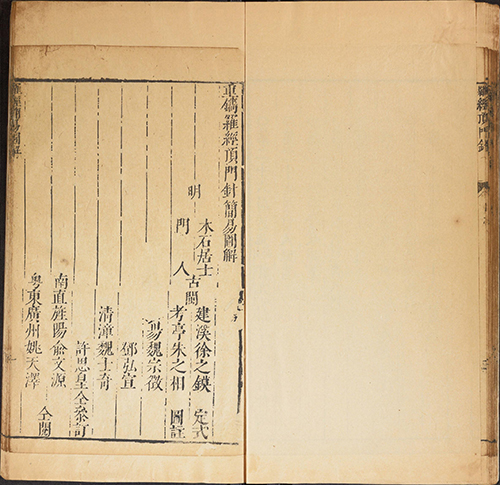 重鐫羅經頂門針簡易圖解
明
木石居士
古閩
建溪徐之鏌
定式
門人
考亭朱之相
圖註
魏宗徵
鄧弘宣
清漳魏士奇
許思皇仝叅訂
南直旌陽俞文源
粵東廣州姚天澤
仝閱
羅經頂門針